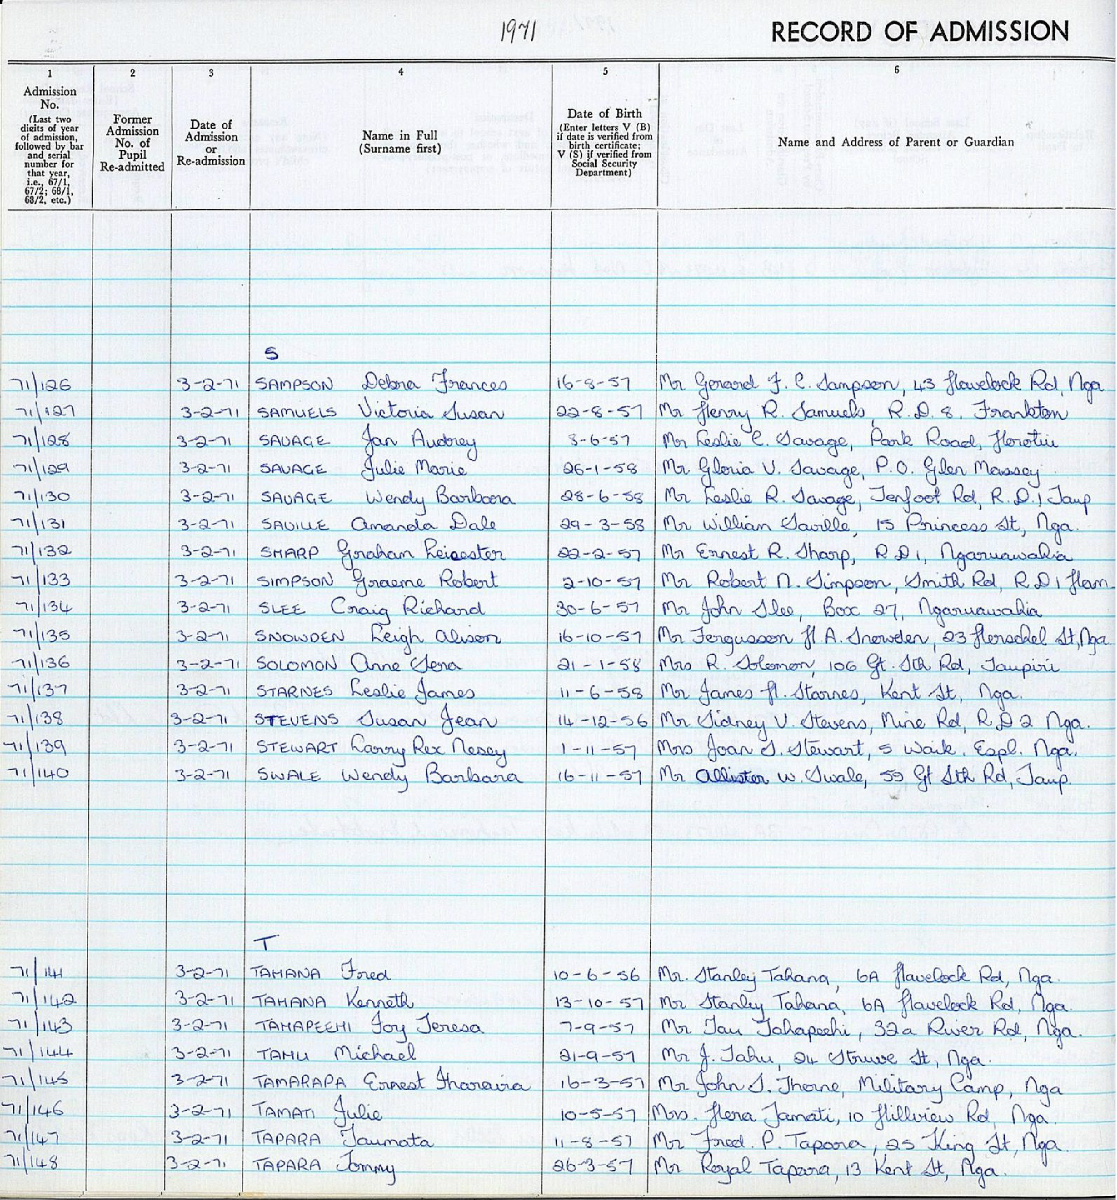 1971 RECORD OF ADMISSION
1 2 3 4 5 6
Admission No. (Last two digits of year of admission, followed by bar and serial number for that year, i.e., 67/1, 67/2; 68/1, 68/2, etc.) Former Admission No. of Pupil Re-admitted Date of Admission or Re-admission Name in Full (Surname first) Date of Birth (Enter letters V (B) if date is verified from birth certificate; V (S) if verified from Social Security Department) Name and Address of Parent or Guardian
S
71/126 3-2-71 SAMPSON Debra Frances 16-8-57 Mr Gerard F. C. Sampson, 43 Havelock Rd, Nga
71/127 3-2-71 SAMUELS Victoria Susan 22-8-57 Mr Henry R. Samuels, R.D. 8. Frankton
71/128 3-2-71 SAVAGE Jan Audrey 8-6-57 Mr Leslie C. Savage, Park Road, Horotiu
71/129 3-2-71 SAVAGE Julie Marie 26-1-58 Mr Gloria V. Savage, P.O. Glen Massey
71/130 3-2-71 SAVAGE Wendy Barbara 28-6-58 Mr Leslie R. Savage, Tenfoot Rd, R.D.1 Taup
71/131 3-2-71 SAVILLE Amanda Dale 29-3-58 Mr William Saville, 15 Princess St, Nga.
71/132 3-2-71 SHARP Graham Leicester 22-2-57 Mr Ernest R. Sharp, R.D1, Ngaruawahia
71/133 3-2-71 SIMPSON Graeme Robert 2-10-57 Mr Robert N. Simpson, Smith Rd, R.D1 Ham
71/134 3-2-71 SLEE Craig Richard 30-6-57 Mr John Slee, Box 27, Ngaruawahia
71/135 3-2-71 SNOWDEN Leigh Alison 16-10-57 Mr Fergusson H A. Snowden, 23 Herschel St, Nga
71/136 3-2-71 SOLOMON Anne Sera 21-1-58 Mrs R. Solomon, 106 Gt. Sth Rd, Taupiri
71/137 3-2-71 STARNES Leslie James 11-6-58 Mr James H. Starnes, Kent St, Nga.
71/138 3-2-71 STEVENS Susan Jean 14-12-56 Mr Sidney V. Stevens, Mine Rd, R.D 2 Nga.
71/139 3-2-71 STEWART Larry Rex Nesey 1-11-57 Mrs Joan S. Stewart, 5 Waik. Espl. Nga.
71/140 3-2-71 SWALE Wendy Barbara 16-11-57 Mr Allister W. Swale, 59 Gt Sth Rd, Taup.
T
71/141 3-2-71 TAHANA Fred 10-6-56 Mr. Stanley Tahana, 6A Havelock Rd, Nga.
71/142 3-2-71 TAHANA Kenneth 13-10-57 Mr Stanley Tahana, 6A Havelock Rd, Nga.
71/143 3-2-71 TAHAPEEHI Joy Teresa 7-9-57 Mr Tau Tahapeehi, 32a River Rd, Nga.
71/144 3-2-71 TAHU Michael 21-9-57 Mr J. Tahu, 24 Struve St, Nga.
71/145 3-2-71 TAMARAPA Ernest Tharaira 16-3-57 Mr John S. Thorne, Military Camp, Nga
71/146 3-2-71 TAMATI Julie 10-5-57 Mrs. Hera Tamati, 10 Hillview Rd, Nga.
71/147 3-2-71 TAPARA Taumata 11-8-57 Mr Fred. P. Tapara, 25 King St, Nga.
71/148 3-2-71 TAPARA Tommy 26-3-57 Mr Royal Tapara, 13 Kent St, Nga.